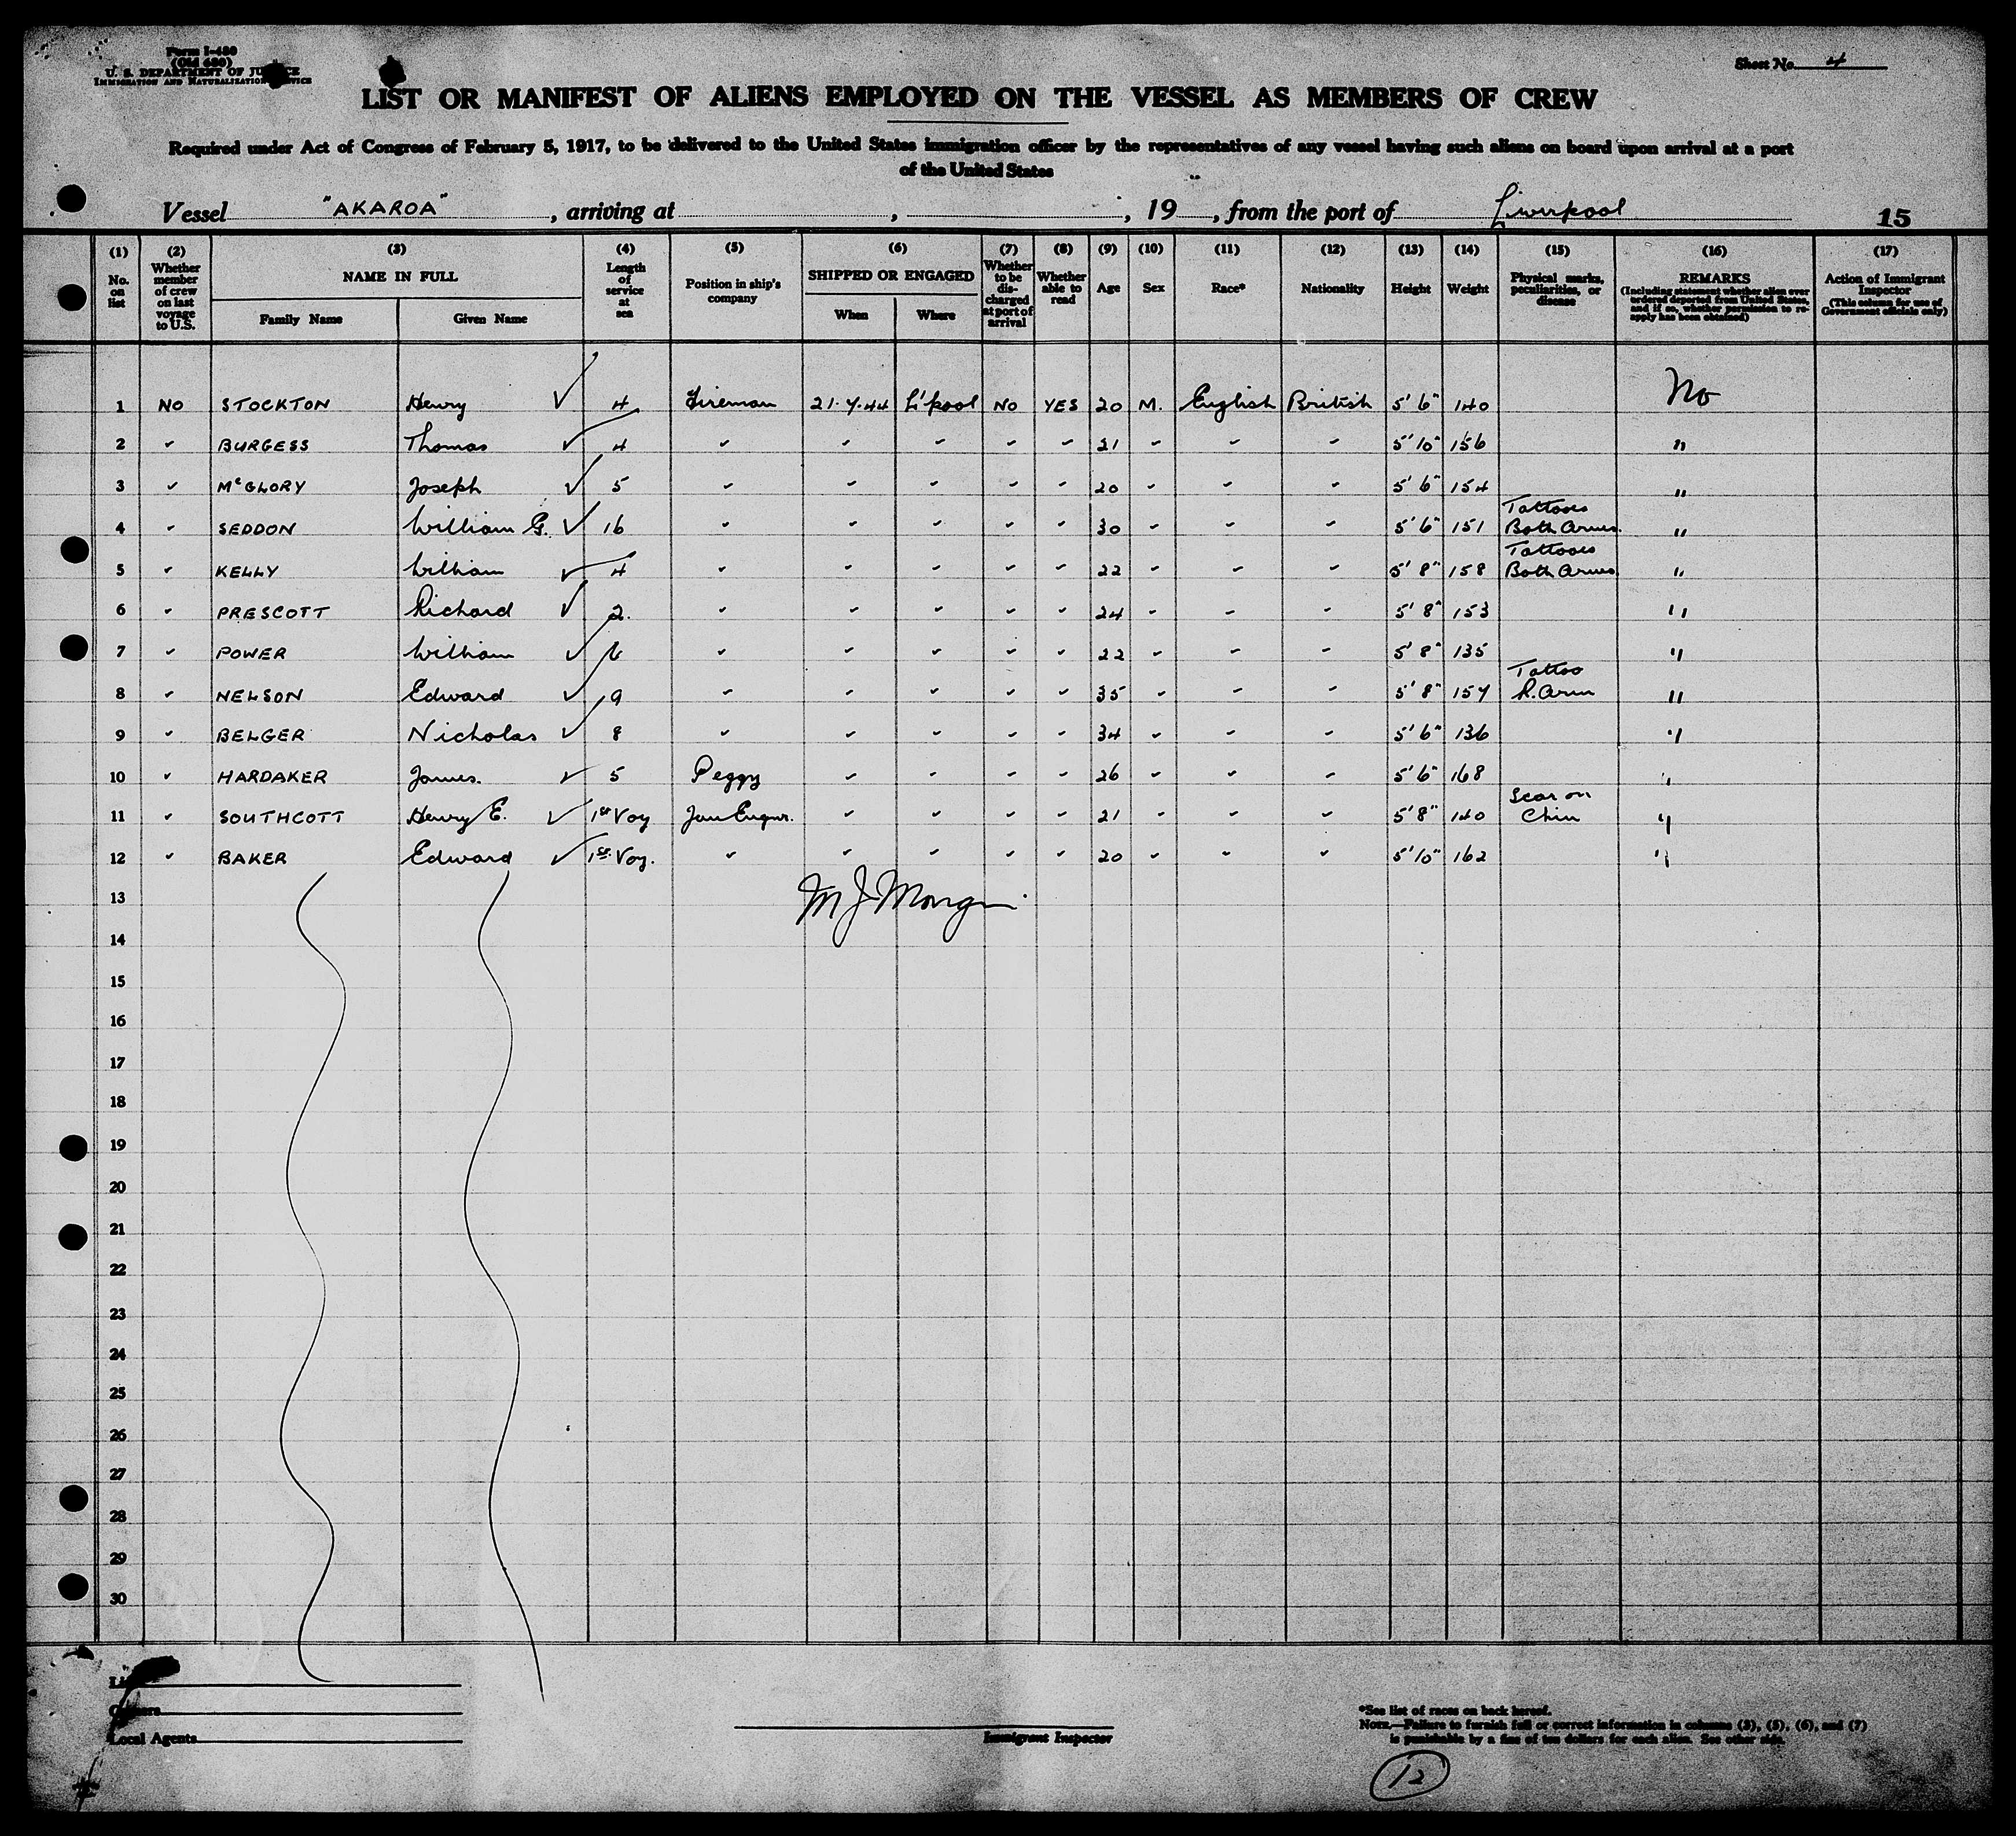 Form I-480
(Old 680)
U. S. DEPARTMENT OF JUSTICE
IMMIGRATION AND NATURALIZATION SERVICE
Sheet No. 4
LIST OR MANIFEST OF ALIENS EMPLOYED ON THE VESSEL AS MEMBERS OF CREW
Required under Act of Congress of February 5, 1917, to be delivered to the United States immigration officer by the representatives of any vessel having such aliens on board upon arrival at a port
of the United States
Vessel "AKAROA" , arriving at , , 19 , from the port of Liverpool 15
(1) No. on list
(2) Whether member of crew on last voyage to U.S.
(3) NAME IN FULL
Family Name
Given Name
(4) Length of service at sea
(5) Position in ship's company
(6) SHIPPED OR ENGAGED
When
Where
(7) Whether to be discharged at port of arrival
(8) Whether able to read
(9) Age
(10) Sex
(11) Race*
(12) Nationality
(13) Height
(14) Weight
(15) Physical marks, peculiarities, or disease
(16) REMARKS
(Including statement whether alien ever ordered deported from United States, and if so, whether permission to reapply has been obtained)
(17) Action of Immigrant Inspector
(This column for use of Government officials only)
1 NO STOCKTON Henry ✓ 4 Fireman 21.7.44 L'pool NO YES 20 M. English British 5' 6" 140 No
2 " BURGESS Thomas ✓ 4 " " " " " 21 " " " 5' 10" 156 "
3 " McGLORY Joseph ✓ 5 " " " " " 20 " " " 5' 6" 154 "
4 " SEDDON William G. ✓ 16 " " " " " 30 " " " 5' 6" 151 Tattooes Both Arms. "
5 " KELLY William ✓ 4 " " " " " 22 " " " 5' 8" 158 Tattooes Both Arms. "
6 " PRESCOTT Richard ✓ 2. " " " " " 24 " " " 5' 8" 153 "
7 " POWER William ✓ 6 " " " " " 22 " " " 5' 8" 135 "
8 " NELSON Edward ✓ 9 " " " " " 35 " " " 5' 8" 157 Tattoo R. Arm "
9 " BELGER Nicholas ✓ 8 " " " " " 34 " " " 5' 6" 136 "
10 " HARDAKER James. ✓ 5 Peggy " " " " 26 " " " 5' 6" 168 "
11 " SOUTHCOTT Henry E. ✓ 1st Voy Jun Engnr. " " " " 21 " " " 5' 8" 140 Scar on Chin "
12 " BAKER Edward ✓ 1st. Voy. " " " " " 20 " " " 5' 10" 162 "
13
14
15
16
17
18
19
20
21
22
23
24
25
26
27
28
29
30
Owners
Local Agents
Immigrant Inspector
*See list of races on back hereof.
NOTE.—Failure to furnish full or correct information in columns (3), (5), (6), and (7)
is punishable by a fine of ten dollars for each alien. See other side.
12